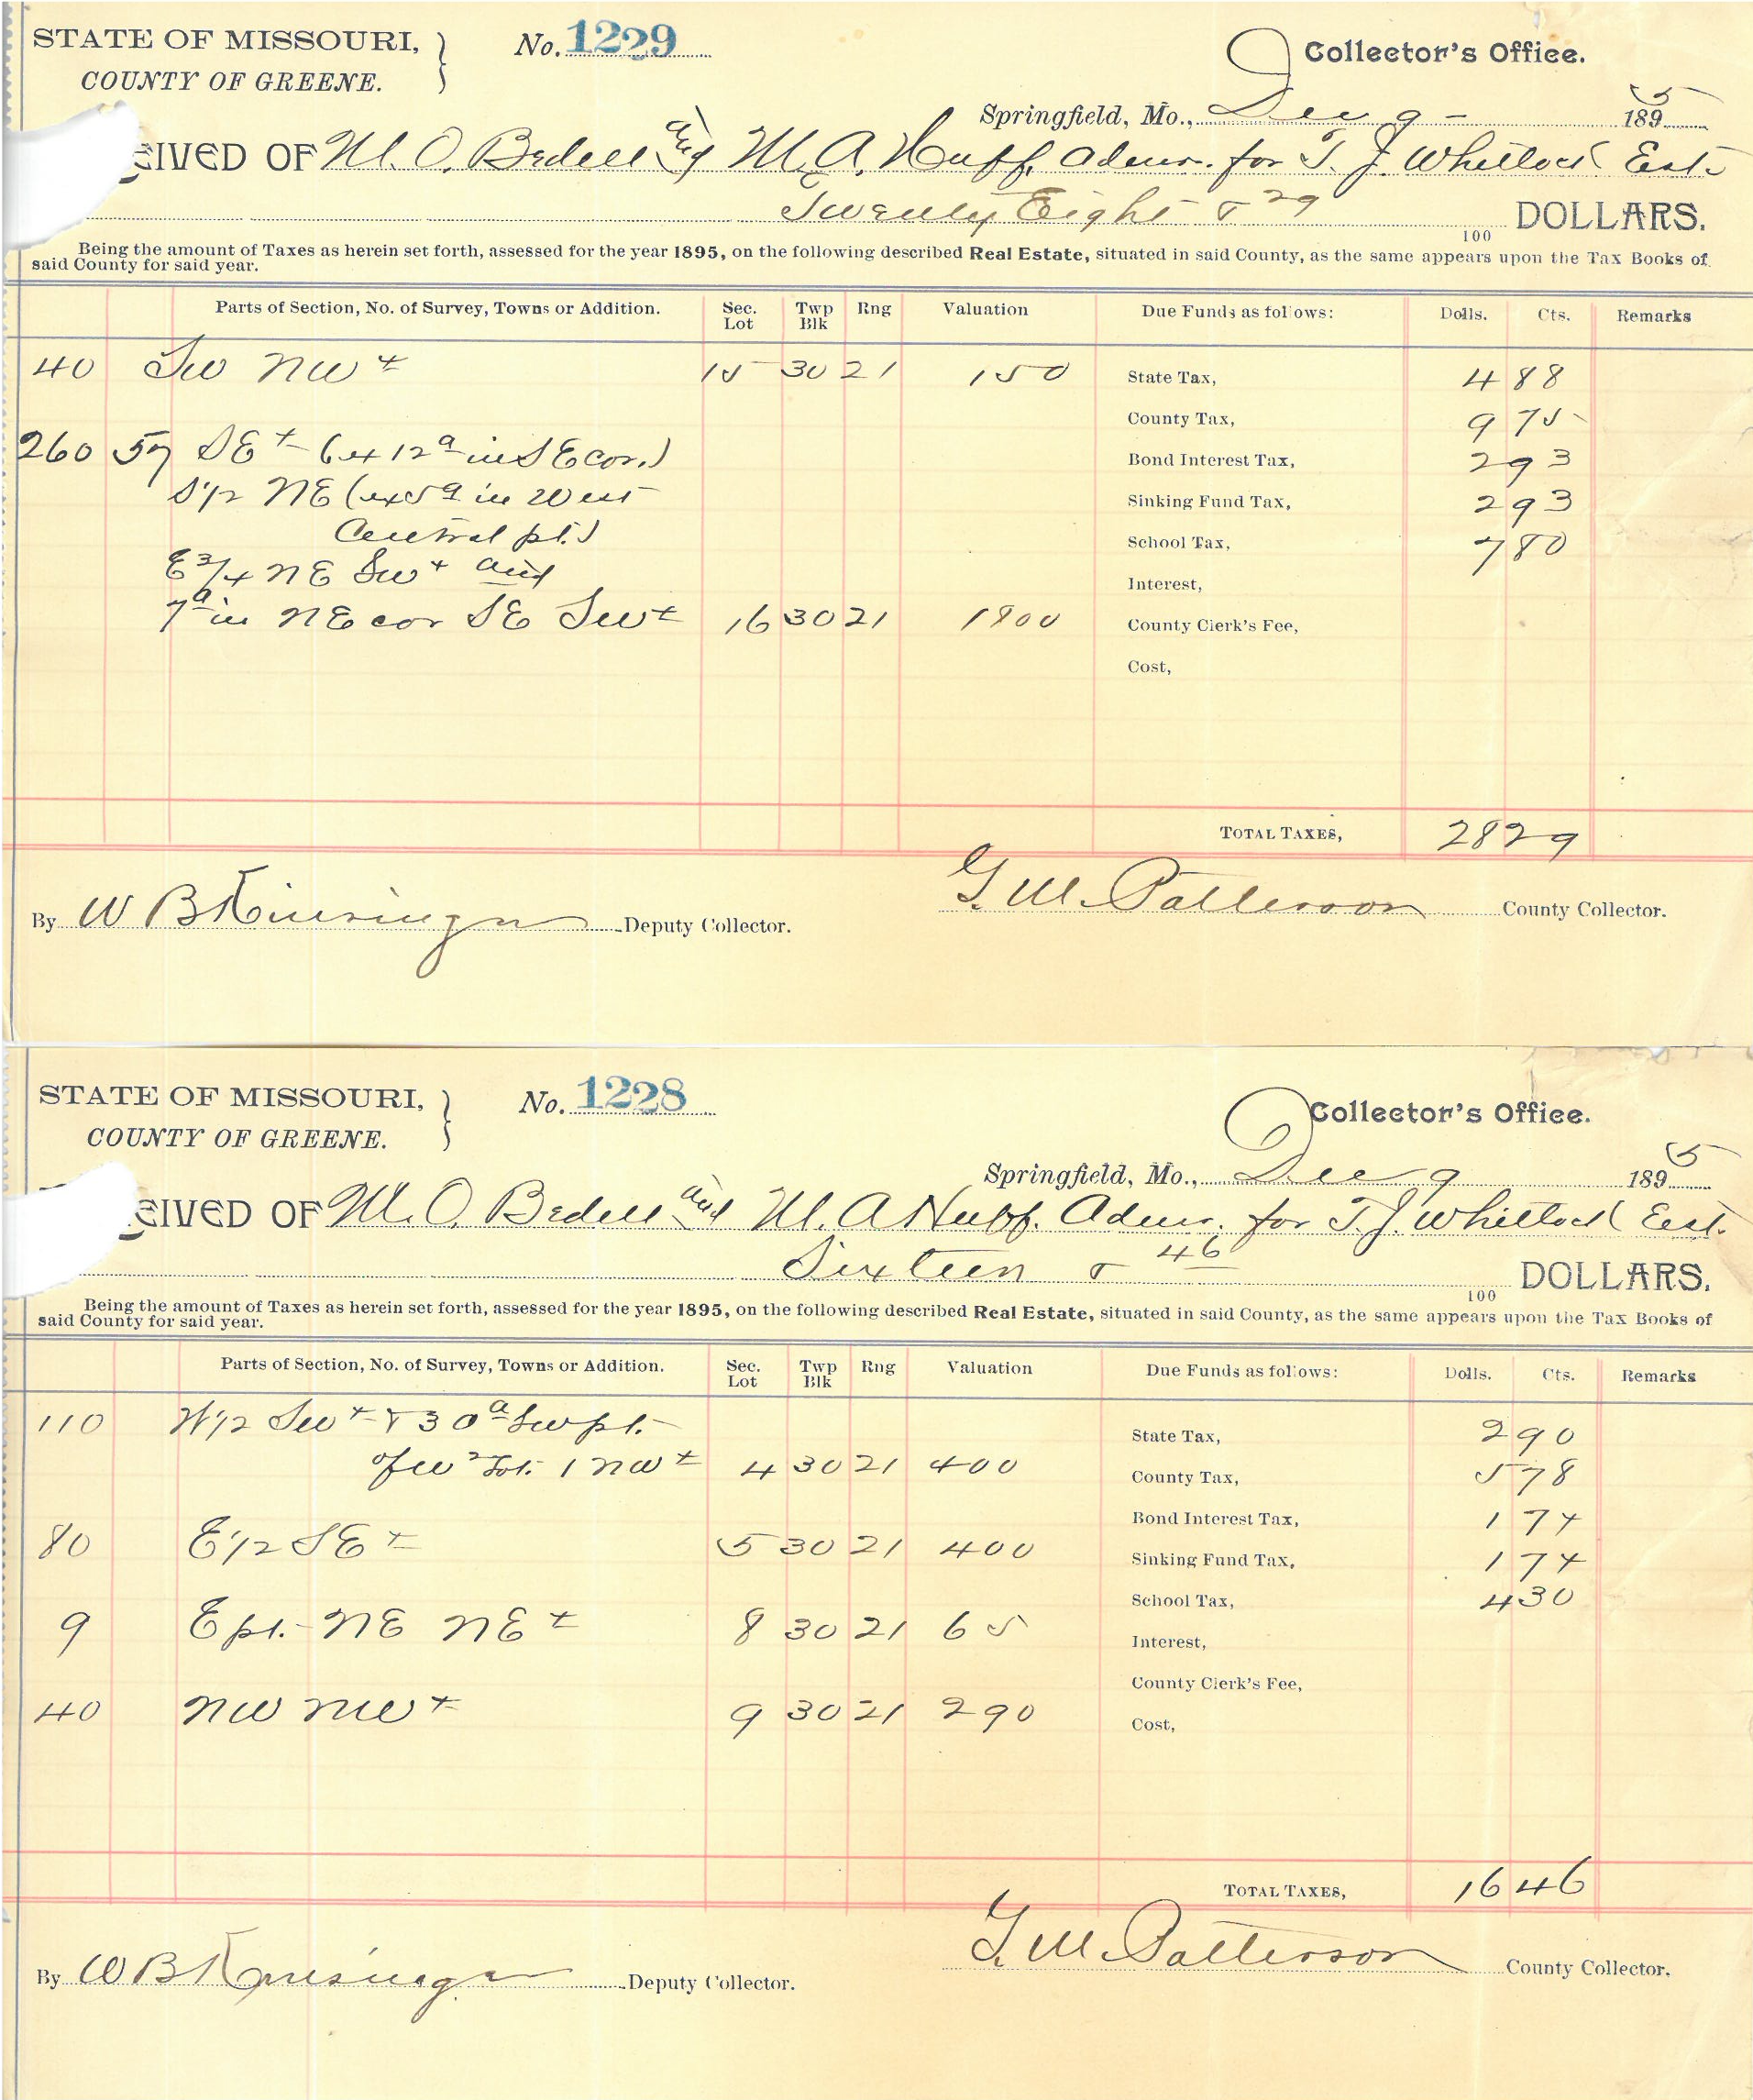 STATE OF MISSOURI, } No. 1229 Collector's Office.
COUNTY OF GREENE.
Springfield, Mo., Dec 9 – 1895
EIVED OF M. O. Bedell and M. A. Huff. Admr. for T. J. Whitlock Est.
Twenty Eight & 29/100 DOLLARS.
Being the amount of Taxes as herein set forth, assessed for the year 1895, on the following described Real Estate, situated in said County, as the same appears upon the Tax Books of
said County for said year.
Parts of Section, No. of Survey, Towns or Addition. Sec. Lot Twp Blk Rng Valuation Due Funds as follows: Dolls. Cts. Remarks
40 SW NW 4 15 30 21 150 State Tax, 4 88
County Tax, 9 75
260 57 SE 4 (ex 12a in SE cor.) Bond Interest Tax, 2 93
S 1/2 NE (ex 5a in West Sinking Fund Tax, 2 93
Central pt.) School Tax, 7 80
E 3/4 NE SW 4 and Interest,
7a in NE cor SE SW 4 16 30 21 1800 County Clerk's Fee,
Cost,
TOTAL TAXES, 28 29
By W B Deputy Collector. G. M. Patterson County Collector.
STATE OF MISSOURI, } No. 1228 Collector's Office.
COUNTY OF GREENE.
Springfield, Mo., Dec 9 1895
EIVED OF M. O. Bedell and M. A Huff. Admr. for T. J. Whitlock Est.
Sixteen & 46/100 DOLLARS.
Being the amount of Taxes as herein set forth, assessed for the year 1895, on the following described Real Estate, situated in said County, as the same appears upon the Tax Books of
said County for said year.
Parts of Section, No. of Survey, Towns or Addition. Sec. Lot Twp Blk Rng Valuation Due Funds as follows: Dolls. Cts. Remarks
110 W 1/2 SW 4 & 30a SW pt. State Tax, 2 90
of W 2 Lot 1 NW 4 4 30 21 400 County Tax, 5 78
Bond Interest Tax, 1 74
80 E 1/2 SE 4 5 30 21 400 Sinking Fund Tax, 1 74
School Tax, 4 30
9 E pt. NE NE 4 8 30 21 65 Interest,
County Clerk's Fee,
40 NW NW 4 9 30 21 290 Cost,
TOTAL TAXES, 16 46
By W B Deputy Collector. G. M. Patterson County Collector.